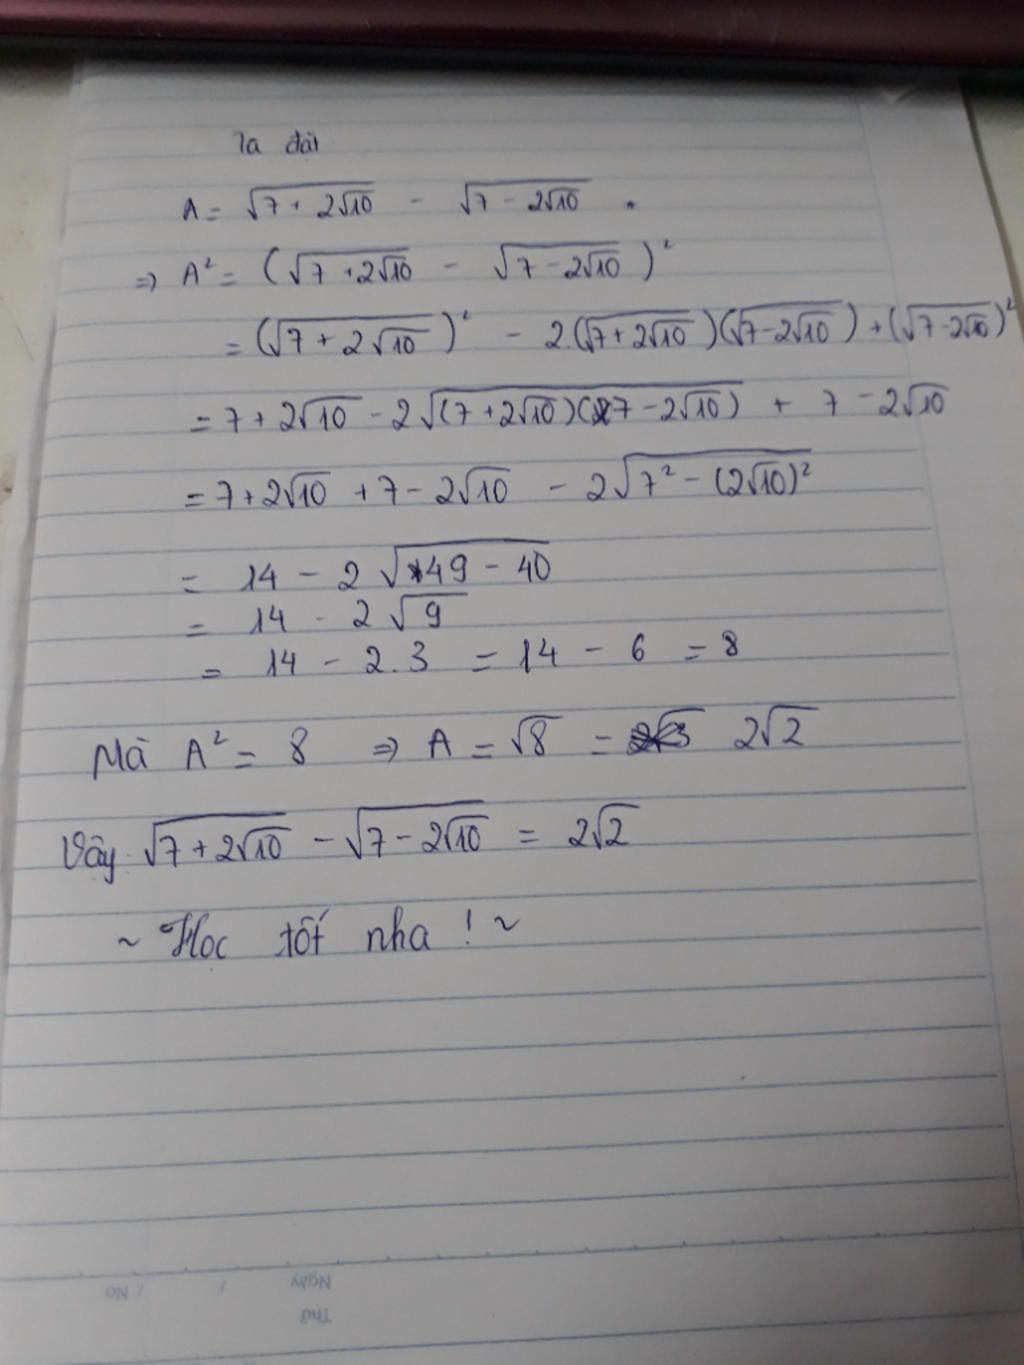 Ta đặt
A = √(7 + 2√10) - √(7 - 2√10) .
⇒ A² = (√(7 + 2√10) - √(7 - 2√10))²
= (√(7 + 2√10))² - 2.(√(7 + 2√10))(√(7 - 2√10)) + (√(7 - 2√10))²
= 7 + 2√10 - 2√((7 + 2√10)(7 - 2√10)) + 7 - 2√10
= 7 + 2√10 + 7 - 2√10 - 2√(7² - (2√10)²)
= 14 - 2√(49 - 40)
= 14 - 2√9
= 14 - 2.3 = 14 - 6 = 8
Mà A² = 8 ⇒ A = √8 = 2√2
Vậy √(7 + 2√10) - √(7 - 2√10) = 2√2
~ Học tốt nha ! ~
Ngày / / No
Thứ